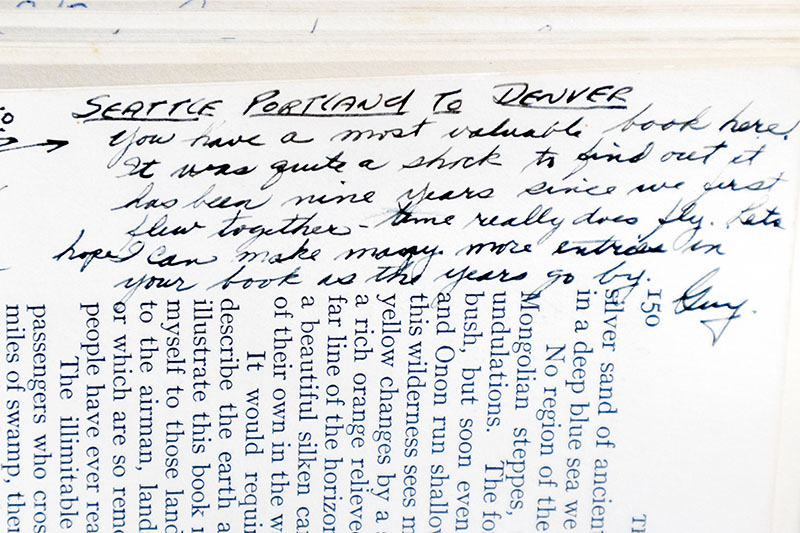 SEATTLE PORTLAND TO DENVER
You have a most valuable book here.
It was quite a shock to find out it
has been nine years since we first
flew together - time really does fly. Lets
hope I can make many more entries in
your book as the years go by.
Guy.
150
silver sand of ancient
in a deep blue sea we
No region of the
Mongolian steppes,
undulations. The
bush, but soon even
and Onon run shallow
this wilderness sees
yellow changes by a
a rich orange relieved
far line of the horizon
a beautiful silken
of their own in the
It would
describe the earth
illustrate this book
myself to those
to the airman,
or which are so
people have ever
The illimitable
passengers who
miles of swamp,